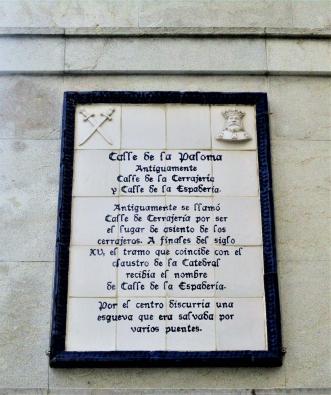 Calle de la Paloma
Antiguamente
Calle de la Cerrajería
y Calle de la Espadería.
Antiguamente se llamó
Calle de Cerrajería por ser
el lugar de asiento de los
cerrajeros. A finales del siglo
XV, el tramo que coincide con el
claustro de la Catedral
recibía el nombre
de Calle de la Espadería.
Por el centro discurría una
esgueva que era salvada por
varios puentes.